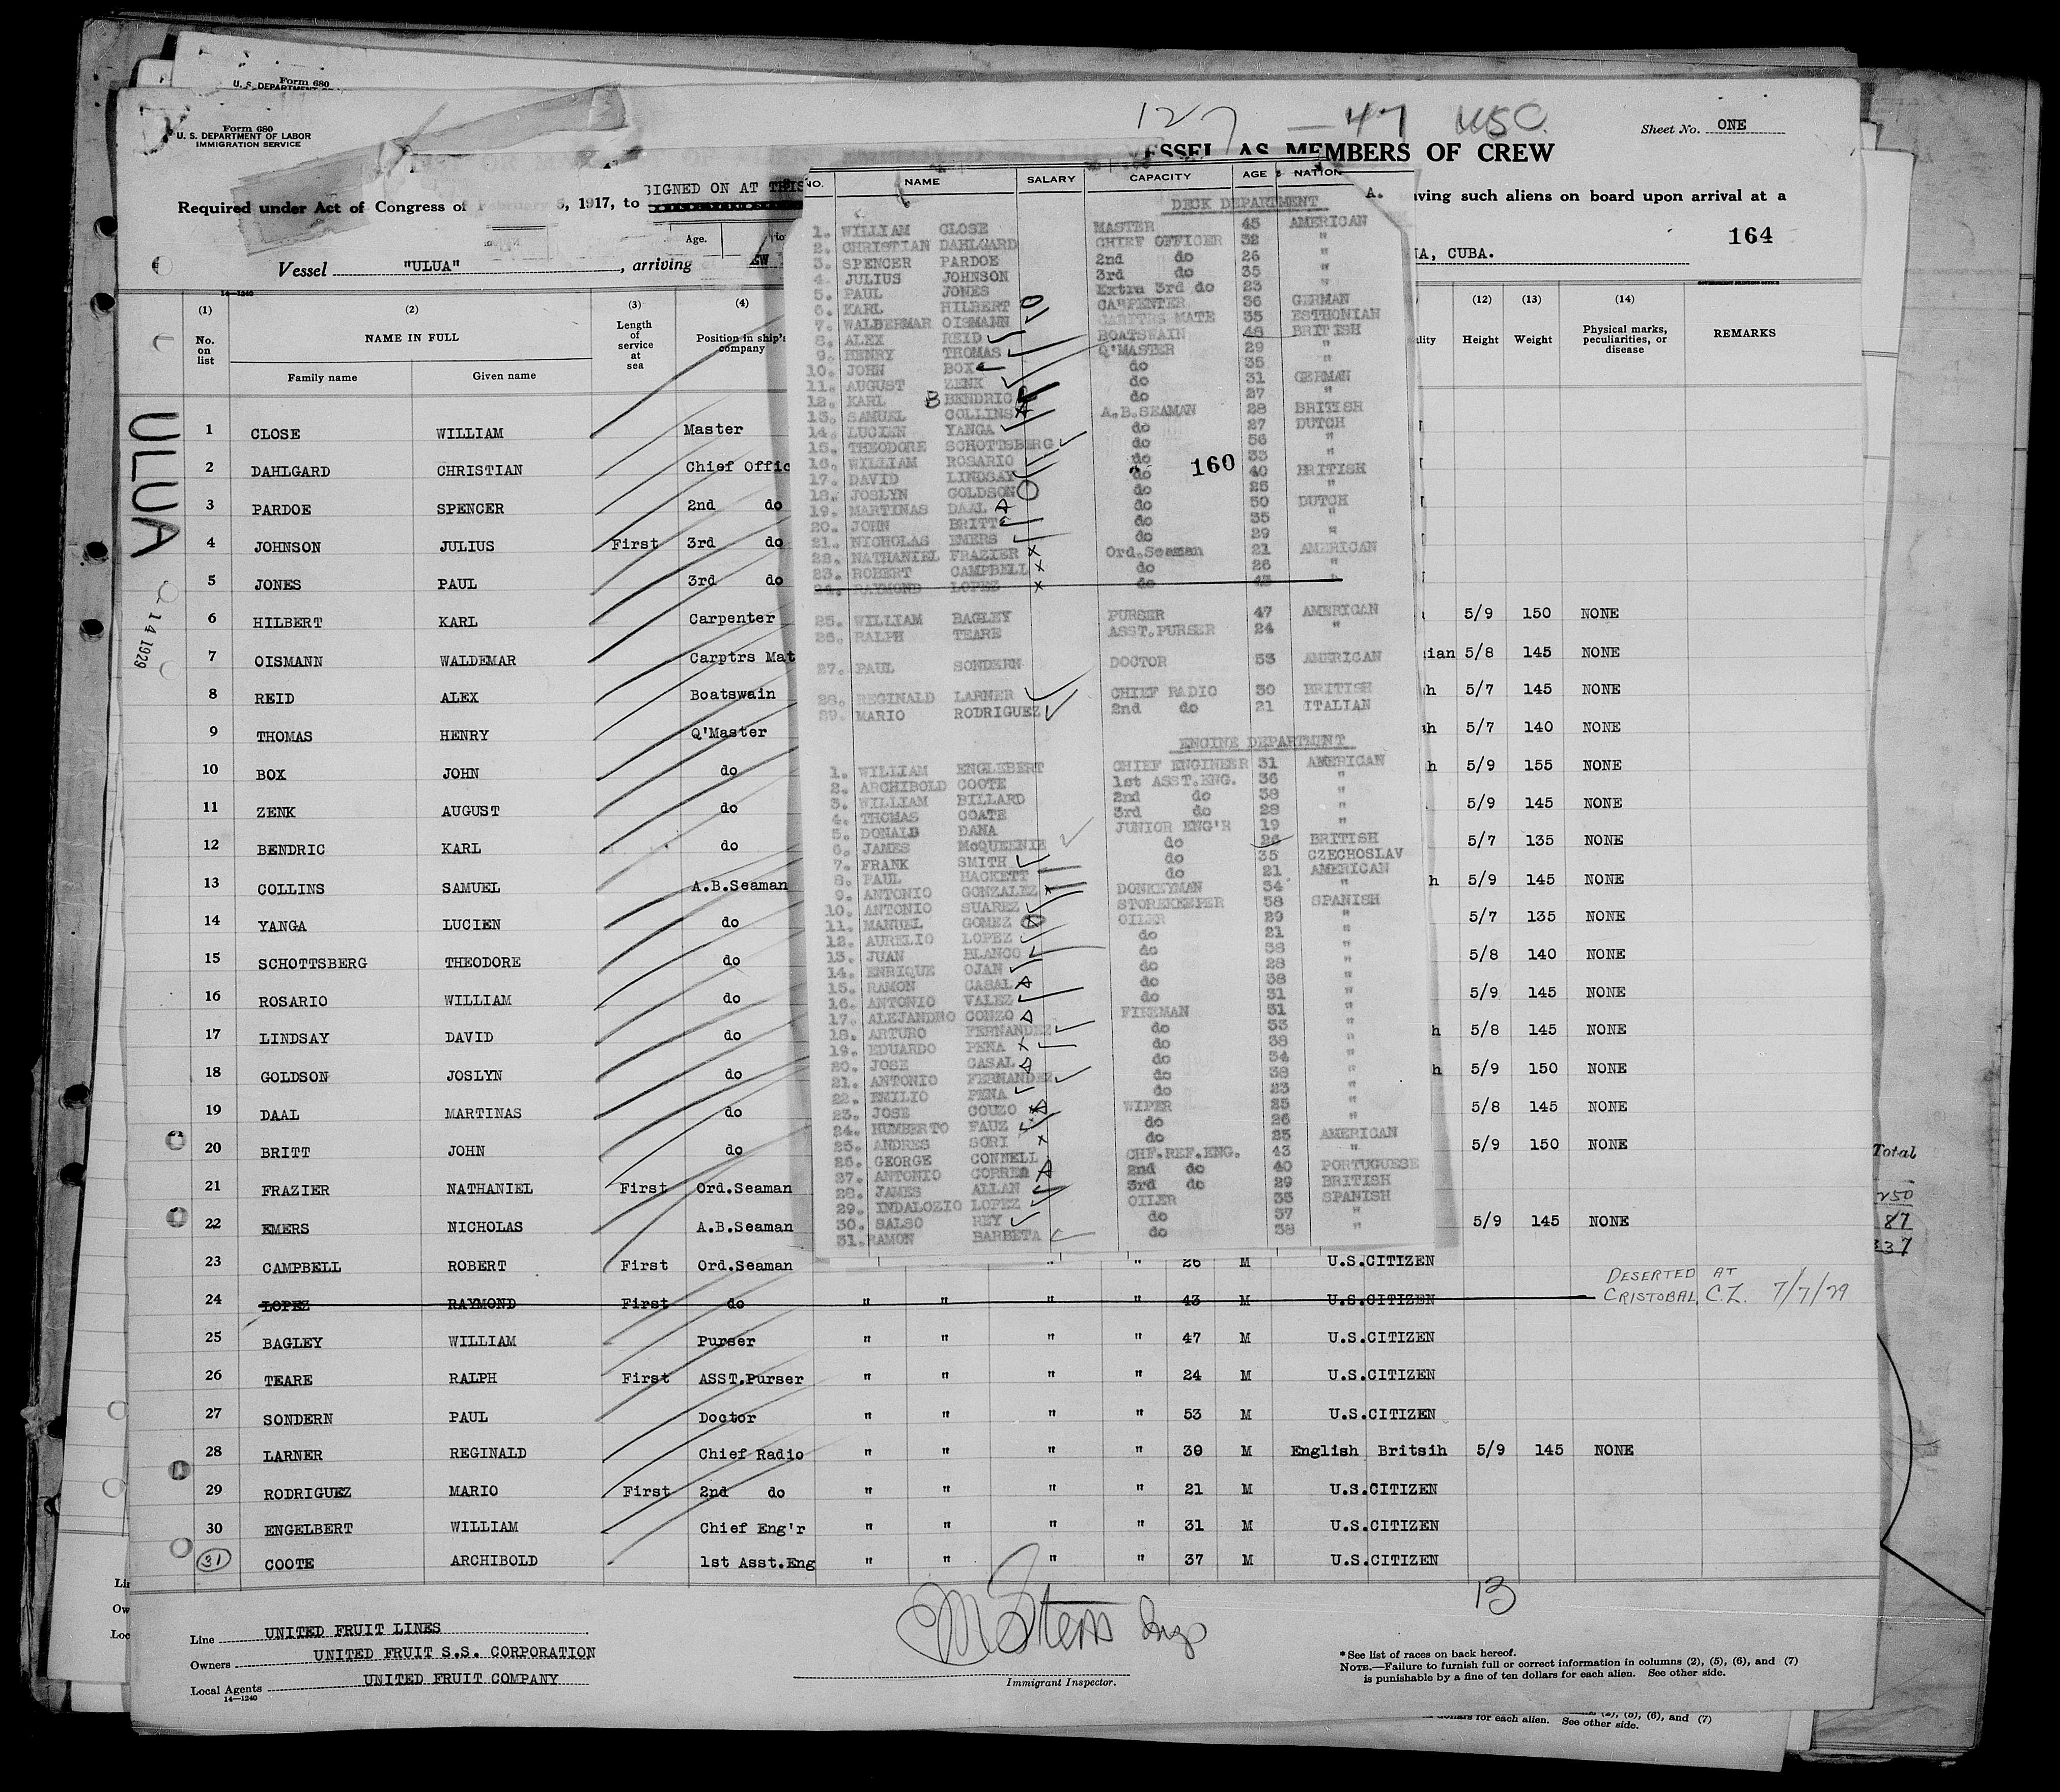 Form 680
U. S. DEPARTMENT
Form 680
U. S. DEPARTMENT OF LABOR
IMMIGRATION SERVICE
127 — 47 USC.
Sheet No. ONE
ESSEL AS MEMBERS OF CREW
SIGNED ON AT THIS
Required under Act of Congress of February 5, 1917, to
A.
aving such aliens on board upon arrival at a
164
Vessel "ULUA", arriving EW
Age.
A, CUBA.
14—1240
(1) (2) (3) (4) (12) (13) (14)
No. on list NAME IN FULL Length of service at sea Position in ship's company Height Weight Physical marks, peculiarities, or disease REMARKS
Family name Given name
ULUA
14 1929
1 CLOSE WILLIAM Master
2 DAHLGARD CHRISTIAN Chief Offic
3 PARDOE SPENCER 2nd do
4 JOHNSON JULIUS First 3rd do
5 JONES PAUL 3rd do
6 HILBERT KARL Carpenter 5/9 150 NONE
7 OISMANN WALDEMAR Carptrs Mat ian 5/8 145 NONE
8 REID ALEX Boatswain h 5/7 145 NONE
9 THOMAS HENRY Q'Master h 5/7 140 NONE
10 BOX JOHN do h 5/9 155 NONE
11 ZENK AUGUST do 5/9 145 NONE
12 BENDRIC KARL do 5/7 135 NONE
13 COLLINS SAMUEL A.B.Seaman h 5/9 145 NONE
14 YANGA LUCIEN do 5/7 135 NONE
15 SCHOTTSBERG THEODORE do 5/8 140 NONE
16 ROSARIO WILLIAM do 5/9 145 NONE
17 LINDSAY DAVID do h 5/8 145 NONE
18 GOLDSON JOSLYN do h 5/9 150 NONE
19 DAAL MARTINAS do 5/8 145 NONE
20 BRITT JOHN do 5/9 150 NONE
21 FRAZIER NATHANIEL First Ord.Seaman
22 EMERS NICHOLAS A.B.Seaman 5/9 145 NONE
23 CAMPBELL ROBERT First Ord.Seaman " " 26 M U.S.CITIZEN
24 LOPEZ RAYMOND First do " " " " 43 M U.S.CITIZEN DESERTED AT CRISTOBAL, C.Z. 7/7/29
25 BAGLEY WILLIAM Purser " " " " 47 M U.S.CITIZEN
26 TEARE RALPH First ASST.Purser " " " " 24 M U.S.CITIZEN
27 SONDERN PAUL Doctor " " " " 53 M U.S.CITIZEN
28 LARNER REGINALD Chief Radio " " " " 30 M English Britsih 5/9 145 NONE
29 RODRIGUEZ MARIO First 2nd do " " " " 21 M U.S.CITIZEN
30 ENGELBERT WILLIAM Chief Eng'r " " " " 31 M U.S.CITIZEN
31 COOTE ARCHIBOLD 1st Asst.Eng " " " " 37 M U.S.CITIZEN
NO. NAME SALARY CAPACITY AGE NATION
DECK DEPARTMENT
1. WILLIAM CLOSE MASTER 45 AMERICAN
2. CHRISTIAN DAHLGARD CHIEF OFFICER 32 "
3. SPENCER PARDOE 2nd do 26 "
4. JULIUS JOHNSON 3rd do 35 "
5. PAUL JONES Extra 3rd do 23 "
6. KARL HILBERT CARPENTER 36 GERMAN
7. WALDERMAR OISMANN CARPTRS MATE 35 ESTHONIAN
8. ALEX REID BOATSWAIN 48 BRITISH
9. HENRY THOMAS Q'MASTER 29 "
10. JOHN BOX do 35 "
11. AUGUST ZENK do 31 GERMAN
12. KARL B BENDRIC do 27 "
13. SAMUEL COLLINS A.B.SEAMAN 28 BRITISH
14. LUCIEN YANGA do 27 DUTCH
15. THEODORE SCHOTTSBERG do 56 "
16. WILLIAM ROSARIO do 33 "
160
17. DAVID LINDSAY do 40 BRITISH
18. JOSLYN GOLDSON do 25 "
19. MARTINAS DAAL do 50 DUTCH
20. JOHN BRITT do 35 "
21. NICHOLAS EMERS do 29 "
22. NATHANIEL FRAZIER Ord.Seaman 21 AMERICAN
23. ROBERT CAMPBELL do 26 "
24. RAYMOND LOPEZ do 43 "
25. WILLIAM BAGLEY PURSER 47 AMERICAN
26. RALPH TEARE ASST.PURSER 24 "
27. PAUL SONDERN DOCTOR 53 AMERICAN
28. REGINALD LARNER CHIEF RADIO 30 BRITISH
29. MARIO RODRIGUEZ 2nd do 21 ITALIAN
ENGINE DEPARTMENT
1. WILLIAM ENGLEBERT CHIEF ENGINEER 31 AMERICAN
2. ARCHIBOLD COOTE 1st ASST.ENG. 36 "
3. WILLIAM BILLARD 2nd do 38 "
4. THOMAS COATE 3rd do 28 "
5. DONALD DANA JUNIOR ENG'R 19 "
6. JAMES McQUEENIE do 26 BRITISH
7. FRANK SMITH do 35 CZECHOSLAV
8. PAUL HACKETT do 21 AMERICAN
9. ANTONIO GONZALEZ DONKEYMAN 34 "
10. ANTONIO SUAREZ STOREKEEPER 58 SPANISH
11. MANUEL GOMEZ OILER 29 "
12. AURELIO LOPEZ do 21 "
13. JUAN BLANCO do 38 "
14. ENRIQUE OJAN do 28 "
15. RAMON CASAL do 38 "
16. ANTONIO VALEZ do 31 "
17. ALEJANDRO CONZO FIREMAN 31 "
18. ARTURO FERNANDEZ do 33 "
19. EDUARDO PENA do 38 "
20. JOSE CASAL do 34 "
21. ANTONIO FERNANDEZ do 38 "
22. EMILIO PENA do 23 "
23. JOSE COUZO WIPER 25 "
24. HUMBERTO FAUZ do 26 "
25. ANDRES SORI do 25 AMERICAN
26. GEORGE CONNELL CHF.REF.ENG. 43 "
27. ANTONIO CORREA 2nd do 40 PORTUGUESE
28. JAMES ALLAN 3rd do 29 BRITISH
29. INDALOZIO LOPEZ OILER 35 SPANISH
30. SALSO REY do 37 "
31. RAMON BARBETA do 38 "
Total
250
87
337
13
Line UNITED FRUIT LINES
Owners UNITED FRUIT S.S. CORPORATION
Local Agents UNITED FRUIT COMPANY
14—1240
Immigrant Inspector.
*See list of races on back hereof.
NOTE.—Failure to furnish full or correct information in columns (2), (5), (6), and (7)
is punishable by a fine of ten dollars for each alien. See other side.
(2), (5), (6), and (7)
dollars for each alien. See other side.